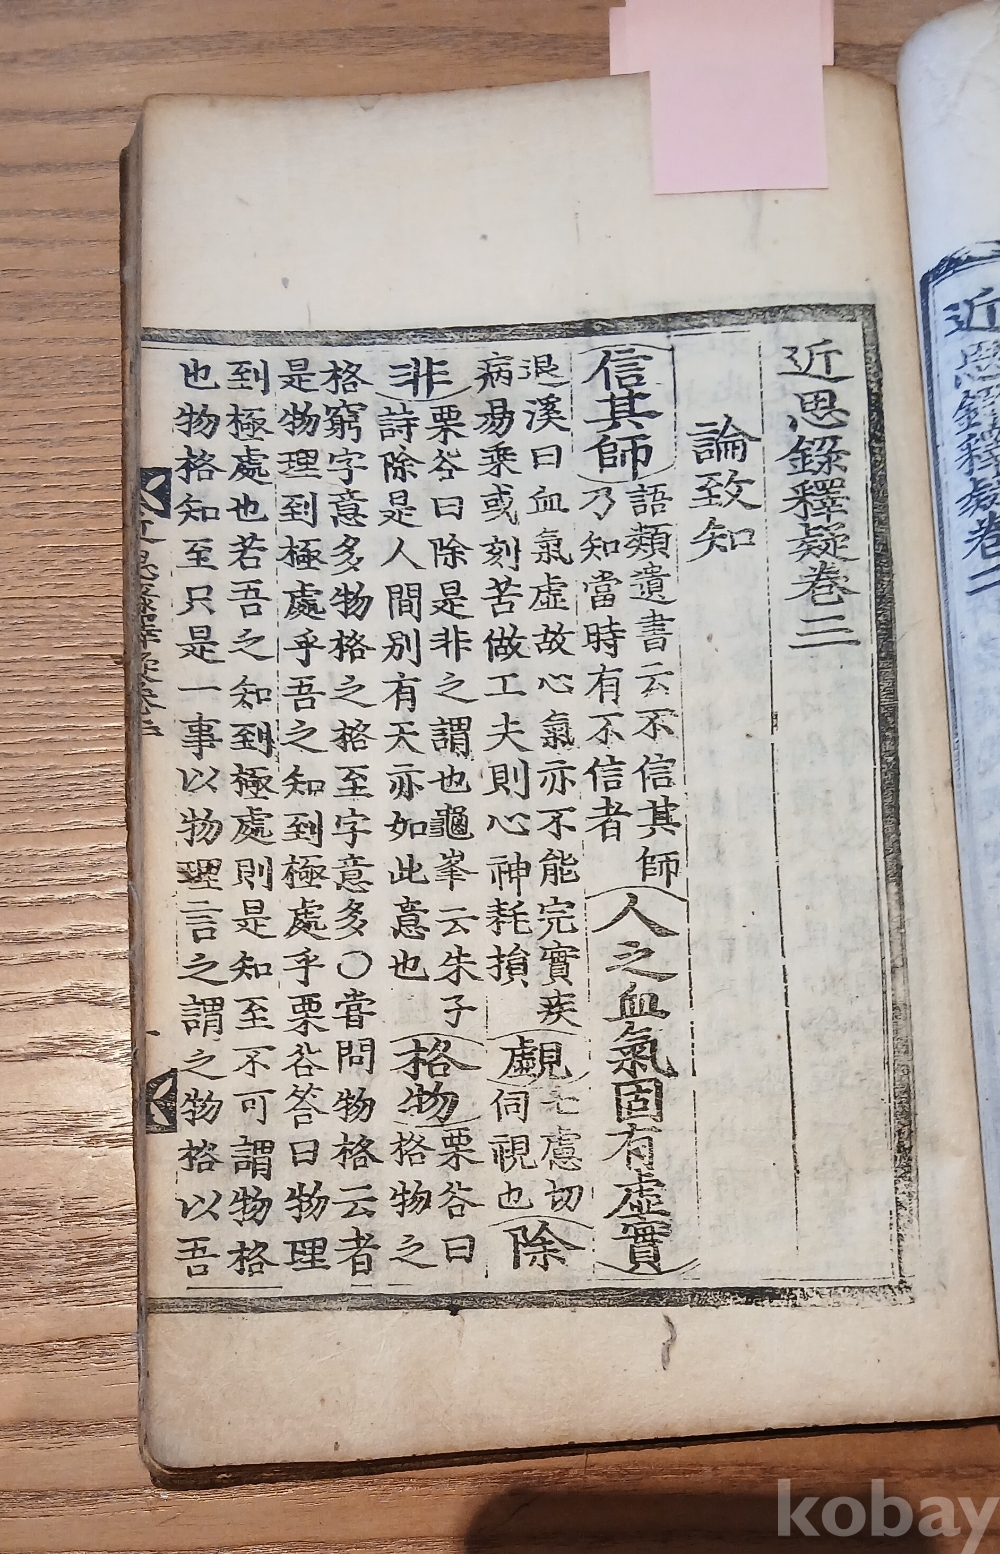 近思錄釋疑卷三
論致知
信其師
語類遺書云不信其師
乃知當時有不信者
人之血氣固有虛實
退溪曰血氣虛故心氣亦不能完實疾
病易乘或刻苦做工夫則心神耗損
覰
七慮切
伺視也
除
非
栗谷曰除是非之謂也龜峯云朱子
詩除是人間別有天亦如此意也
格物
栗谷曰
格物之
格窮字意多物格之格至字意多〇嘗問物格云者
是物理到極處乎吾之知到極處乎栗谷答曰物理
到極處也若吾之知到極處則是知至不可謂物格
也物格知至只是一事以物理言之謂之物格以吾
近思錄釋疑卷三
一
近思錄釋疑卷二
kobay